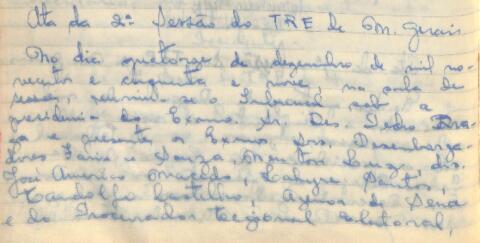 Ata da 2ª Sessão do TRE de M. Gerais
No dia quatorze de dezembro de mil no-
vecentos e cinquenta e nove, na sala de
sessões, reuniu-se o Tribunal sob a
presidencia do Exmo. Sr. Des. Pedro Bra-
ga e presentes os Exmos. Srs. Desembarga-
dores Faria e Souza, Merolino drs.
José Americo Macedo, Santos,
Castilho, de Sena
e do Procurador Regional Eleitoral,